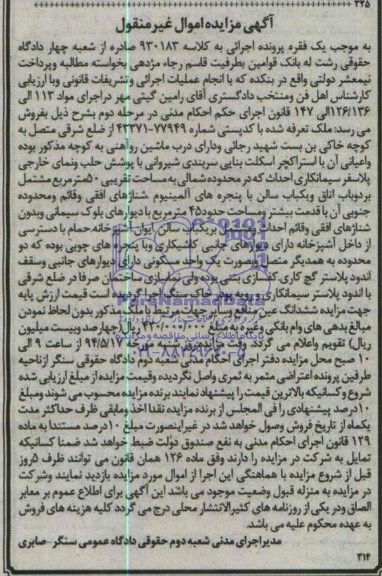 ۳۲۵
آگهی مزایده اموال غیر منقول
به موجب یک فقره پرونده اجرائی به کلاسه ۹۳۰۱۸۳ صادره از شعبه چهار دادگاه
حقوقی رشت له بانک قوامین بطرفیت قاسم رجاء مژدهی بخواسته مطالبه و پرداخت
نیمعشر دولتی واقع در بنکده که با انجام عملیات اجرائی و تشریفات قانونی و با ارزیابی
کارشناس اهل فن و منتخب دادگستری آقای رامین گیتی مهر در اجرای مواد ۱۱۳ الی
۱۲۶/۱۳۶ الی ۱۴۷ قانون اجرای حکم احکام مدنی در مرحله دوم بشرح ذیل بفروش
می رسد: ملک تعرفه شده با کدپستی شماره ۷۷۹۴۹-۴۳۳۷۱ از ضلع شرقی متصل به
کوچه خاکی بن بست شهید رجائی و دارای درب ماشین رو آهنی به کوچه مذکور بوده
و اعیانی آن با استراکچر اسکلت بنایی سربندی شیروانی با پوشش حلب و نمای خارجی
پلاسفر سیمانکاری احداث که در محدوده شمالی به مساحت تقریبی ۵۰ متر مربع مشتمل
بر دو باب اتاق و یکباب سالن با پنجره های آلمینیوم شناژهای افقی و قائم و محدوده
جنوبی آن با قدمت بیشتر و مساحت حدود ۴۵ متر مربع با دیوارهای بلوک سیمانی و بدون
شناژهای افقی و قائم احداث یکباب سالن ایوان آشپزخانه حمام با دسترسی
از داخل آشپزخانه دارای دیوارهای جانبی کاشیکاری و با پنجره های چوبی بوده که دو
محدوده به همدیگر متصل و بصورت یک واحد مسکونی دارای دیوارهای جانبی و سقف
اندود پلاستر گچ کاری کفسازی بتنی بوده ولی نماسازی ساختمان صرفا در ضلع شرقی
با اندود پلاستر سیمانکاری و بدنه دیوار است قیمت ارزش پایه
جهت مزایده ششدانگ عین و منافع و سایر جهات مرتبط با ملک مذکور بدون لحاظ نمودن
مبالغ بدهی های وام بانکی و غیره به مبلغ ۴۲۰/۰۰۰/۰۰۰ ریال (چهارصد و بیست میلیون
ریال) تقویم و اعلام می گردد وقت مزایده روز ۹۴/۵/۱۷ از ساعت ۹ الی
۱۰ صبح محل مزایده دفتر اجرای احکام مدنی شعبه دوم دادگاه حقوقی سنگر از ناحیه
طرفین پرونده اعتراضی مثمر به ثمری واصل نگردیده و قیمت مزایده از مبلغ ارزیابی شده
شروع و کسانیکه بالاترین قیمت را پیشنهاد نمایند برنده مزایده محسوب می شوند و مبلغ
۱۰ درصد پیشنهادی را فی المجلس از برنده مزایده نقدا اخذ و مابقی ظرف حداکثر مدت
یکماه از تاریخ فروش وصول خواهد شد در غیر اینصورت مبلغ ۱۰ درصد مستندا به ماده
۱۲۹ قانون اجرای احکام مدنی به نفع صندوق دولت ضبط خواهد شد ضمنا کسانیکه
تمایل به شرکت در مزایده را دارند وفق ماده ۱۲۶ همان قانون می توانند ظرف ۵ روز
قبل از شروع مزایده با هماهنگی این اجرا از اموال مورد مزایده بازدید نمایند و شرکت
در مزایده به منزله قبول وضعیت موجود می باشد این آگهی برای اطلاع عموم بر معابر
الصاق و در یکی از روزنامه های کثیرالانتشار محلی درج می گردد کلیه هزینه های فروش
به عهده محکوم علیه می باشد.
مدیر اجرای مدنی شعبه دوم حقوقی دادگاه عمومی سنگر - صابری
۳۱۴